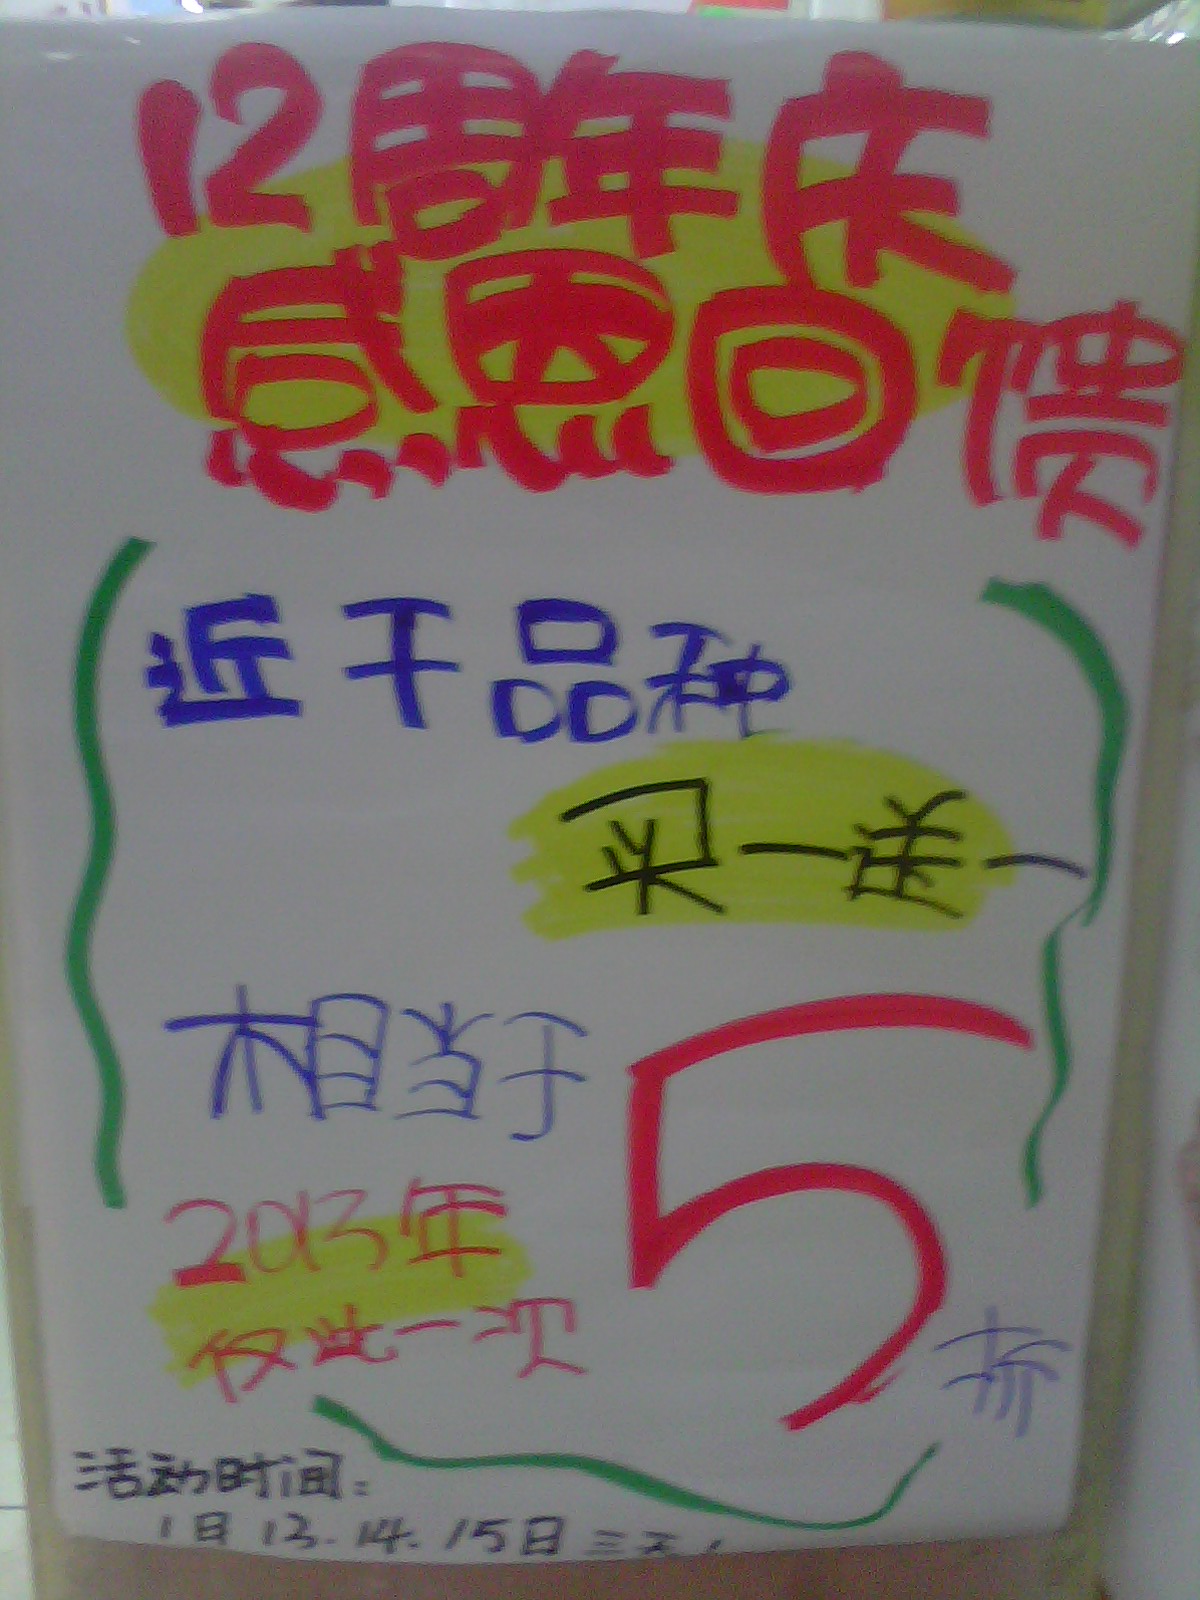 12周年庆
感恩回馈
近千品种
买一送一
相当于
5折
2013年
仅此一次
活动时间:
1月13.14.15日三天!